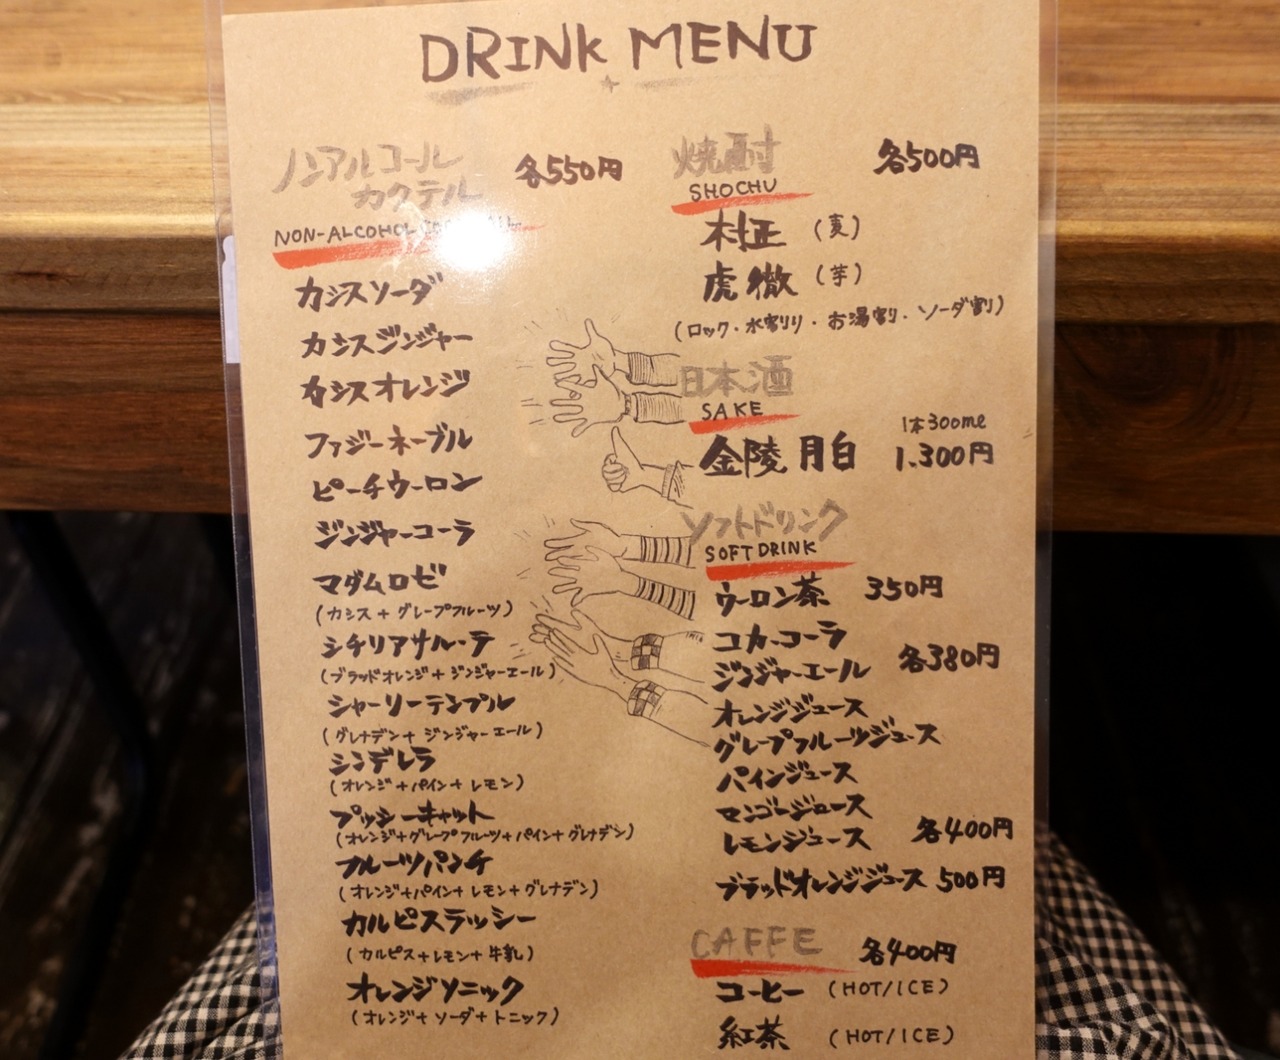 DRINK MENU
ノンアルコール
カクテル
各550円
NON-ALCOHOL
カシスソーダ
カシスジンジャー
カシスオレンジ
ファジーネーブル
ピーチウーロン
ジンジャーコーラ
マダムロゼ
(カシス+グレープフルーツ)
シチリアサルーテ
(ブラッドオレンジ+ジンジャーエール)
シャーリーテンプル
(グレナデン+ジンジャーエール)
シンデレラ
(オレンジ+パイン+レモン)
プッシーキャット
(オレンジ+グレープフルーツ+パイン+グレナデン)
フルーツパンチ
(オレンジ+パイン+レモン+グレナデン)
カルピスラッシー
(カルピス+レモン+牛乳)
オレンジソニック
(オレンジ+ソーダ+トニック)
焼酎 各500円
SHOCHU
村正 (麦)
虎徹 (芋)
(ロック・水割り・お湯割・ソーダ割)
日本酒
SAKE
1本300ml
金陵 月白 1.300円
ソフトドリンク
SOFT DRINK
ウーロン茶 350円
コカ・コーラ
ジンジャーエール 各380円
オレンジジュース
グレープフルーツジュース
パインジュース
マンゴージュース
レモンジュース 各400円
ブラッドオレンジジュース 500円
CAFFE 各400円
コーヒー (HOT/ICE)
紅茶 (HOT/ICE)